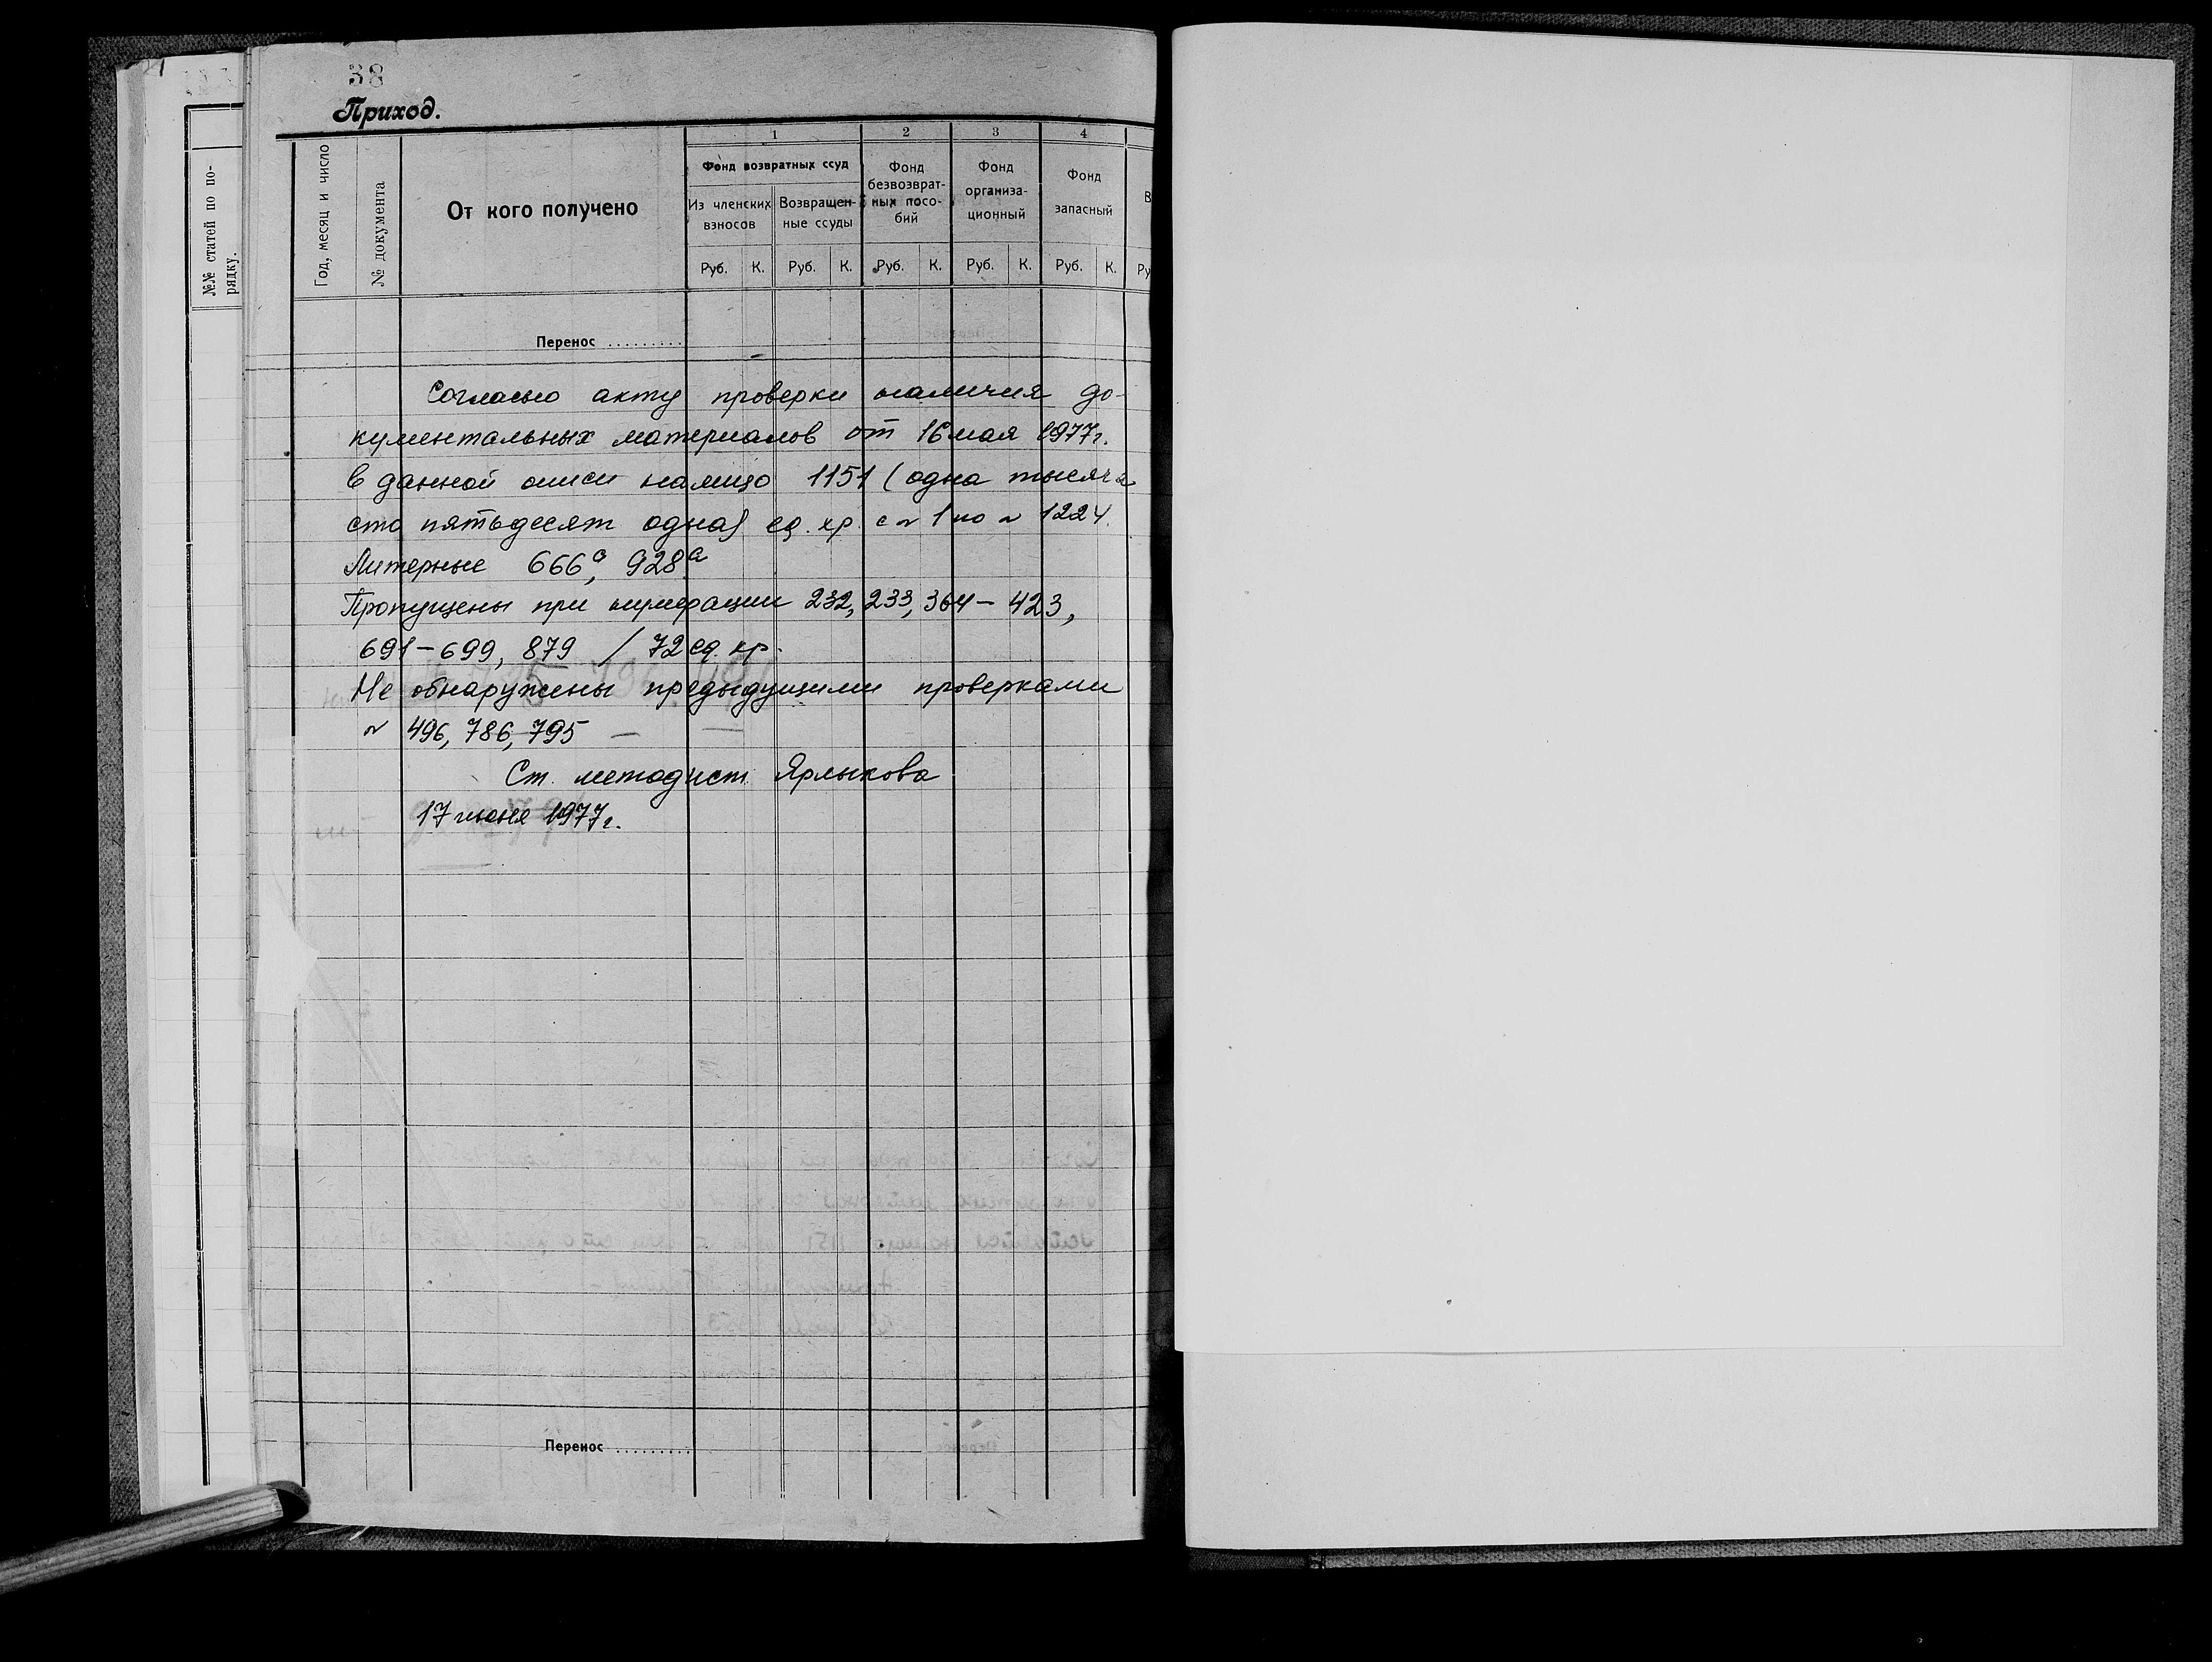 38
Приход.
№№ статей по по-
рядку.
Год, месяц и число
№ документа
От кого получено
1
2
3
4
Фонд возвратных ссуд
Из членских
взносов
Возвращен-
ные ссуды
Фонд
безвозврат-
ных посо-
бий
Фонд
организа-
ционный
Фонд
запасный
Руб. К. Руб. К. Руб. К. Руб. К. Руб. К.
Перенос .........
Согласно акту проверки наличия до-
кументальных материалов от 16 мая 1977 г.
в данной описи налицо 1151 (одна тысяча
сто пятьдесят одна) ед. хр. с № 1 по № 1224.
Литерные 666а, 928а
Пропущены при нумерации 232, 233, 364–423,
691–699, 879 / 72 ед. хр.
Не обнаружены предыдущими проверками
№ 496, 786, 795
Ст. методист Ярлыкова
17 июня 1977 г.
Перенос .........